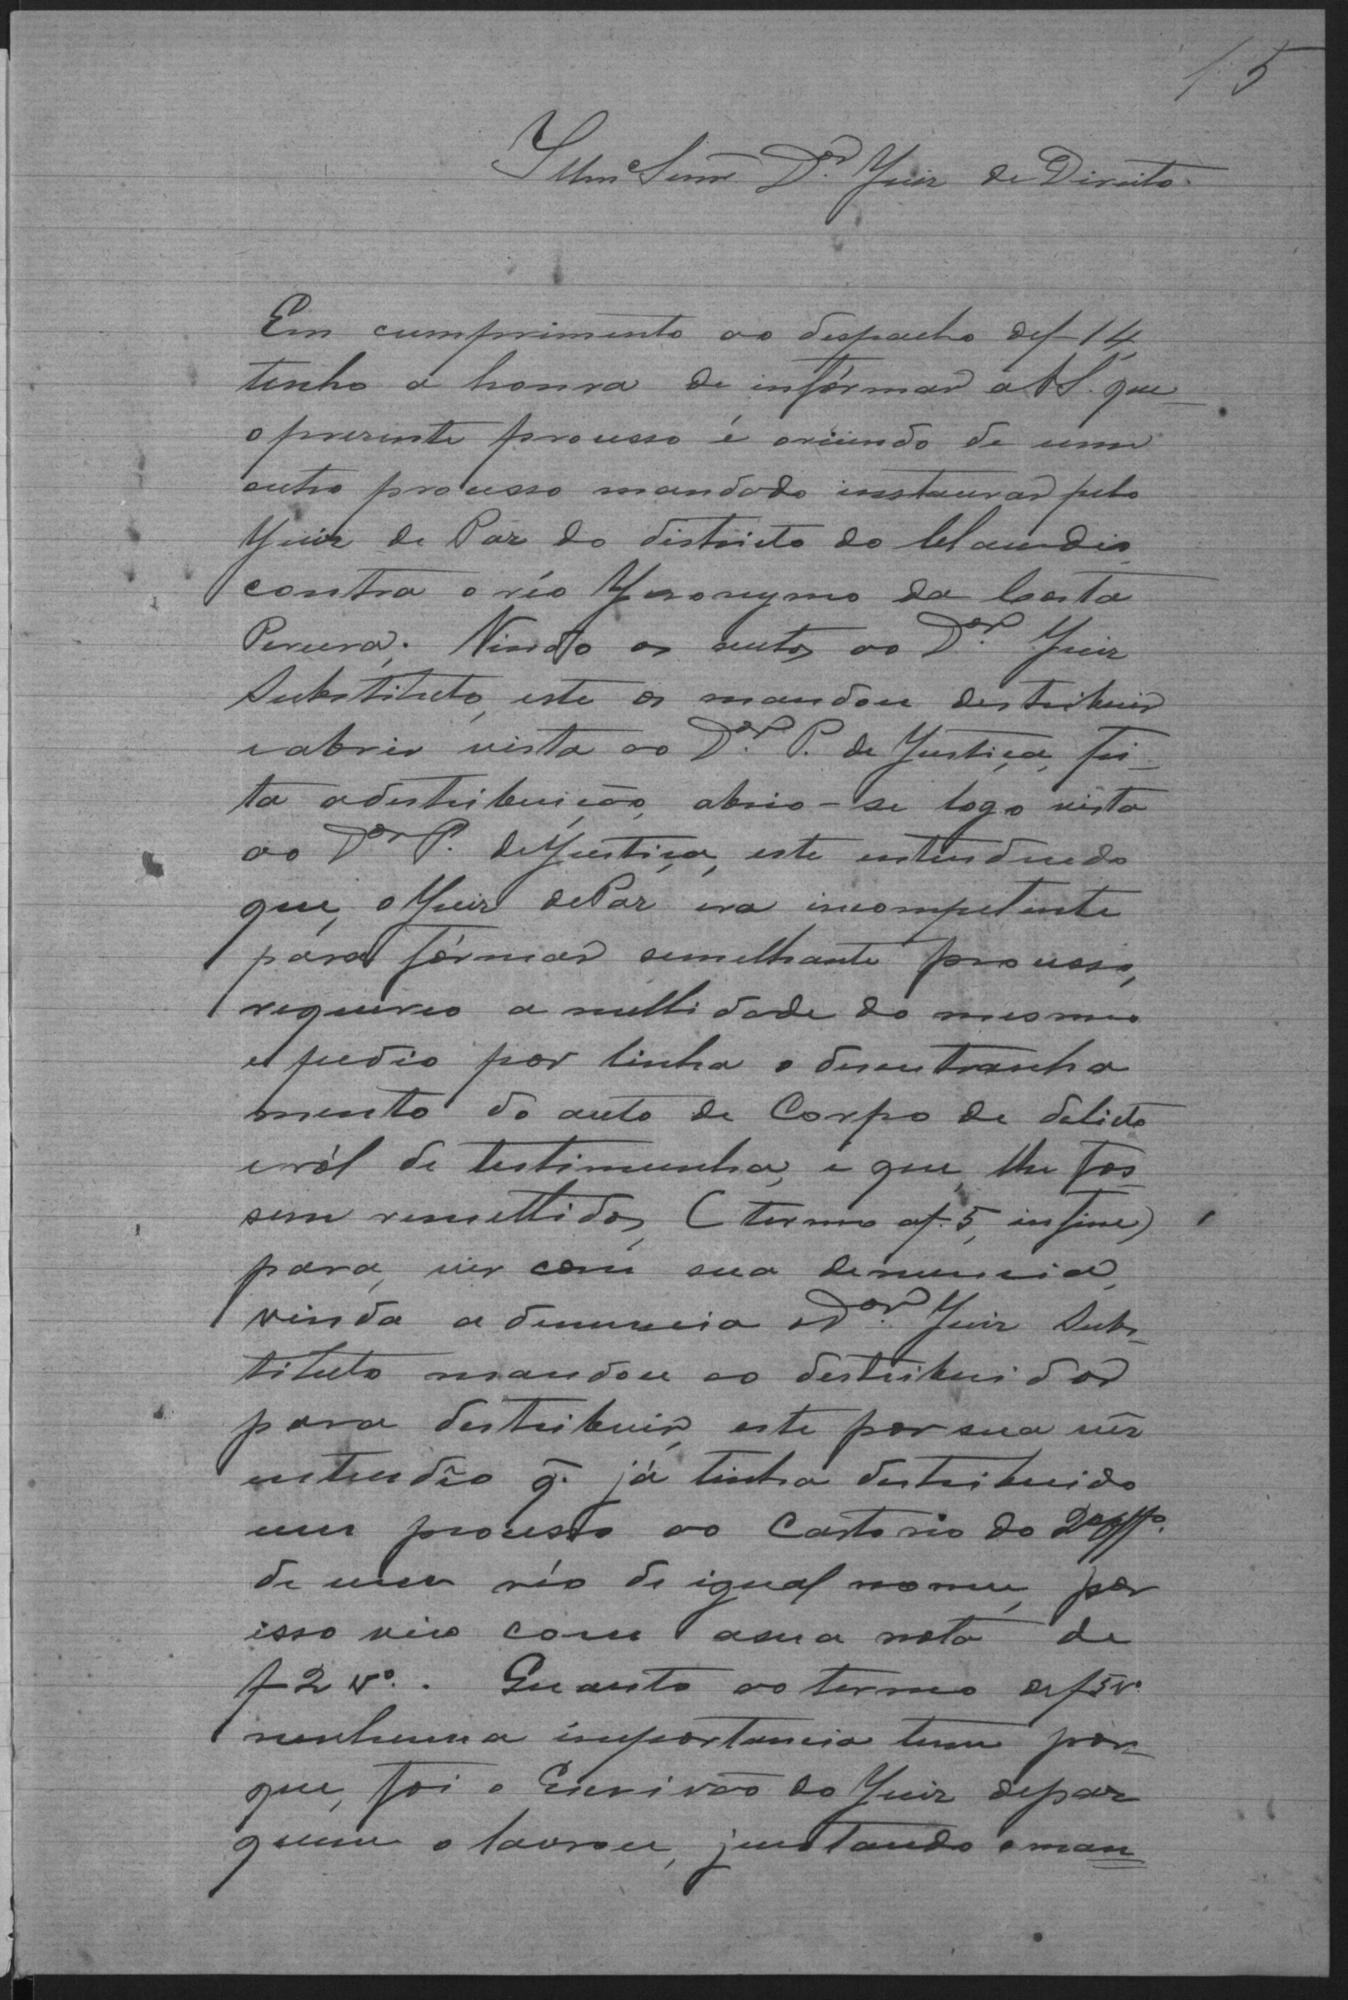 15
Illmº Senr. Dor. Juiz de Direito.
Em cumprimento ao despacho de f 14,
tenho a honra de infórmar a V S. que
o prezente processo é oriundo de um
outro processo mandado instaurar pelo
Juiz de Paz do districto do Claudio
contra o réo Jeronymo da Costa
Pereira. Vindo os autos ao Dor. Juiz
Substituto, este os mandou destribuir
e abrir vista ao Dor. P. de Justiça, fei-
ta a destribuição, abrio-se logo vista
ao Dor P. de Justiça, este entendendo
que, o Juiz de Paz era incompetente
para fórmar semelhante processo,
requereo a nullidade do mesmo
e pedio por linha o desentranha
mento do auto de Corpo de delicto
e ról de testimunha, e que, lhe fos-
sem remettidos, (termo a f. 5, in fine)
para, vir com sua denuncia,
vinda a denuncia o Dor. Juiz Subs-
tituto mandou ao destribuidor
para destribuir, este por sua vêz
entendêo q. já tinha destribuido
um processo ao Cartorio do 2º offº.
de um réo de igual nome, por
isso veio com a sua nota de
f 2 vº. Quanto ao termo de f 5 vº
nenhuma importancia tem por-
que, foi o Escrivão do Juiz de paz
quem o lavrou, juntando o man